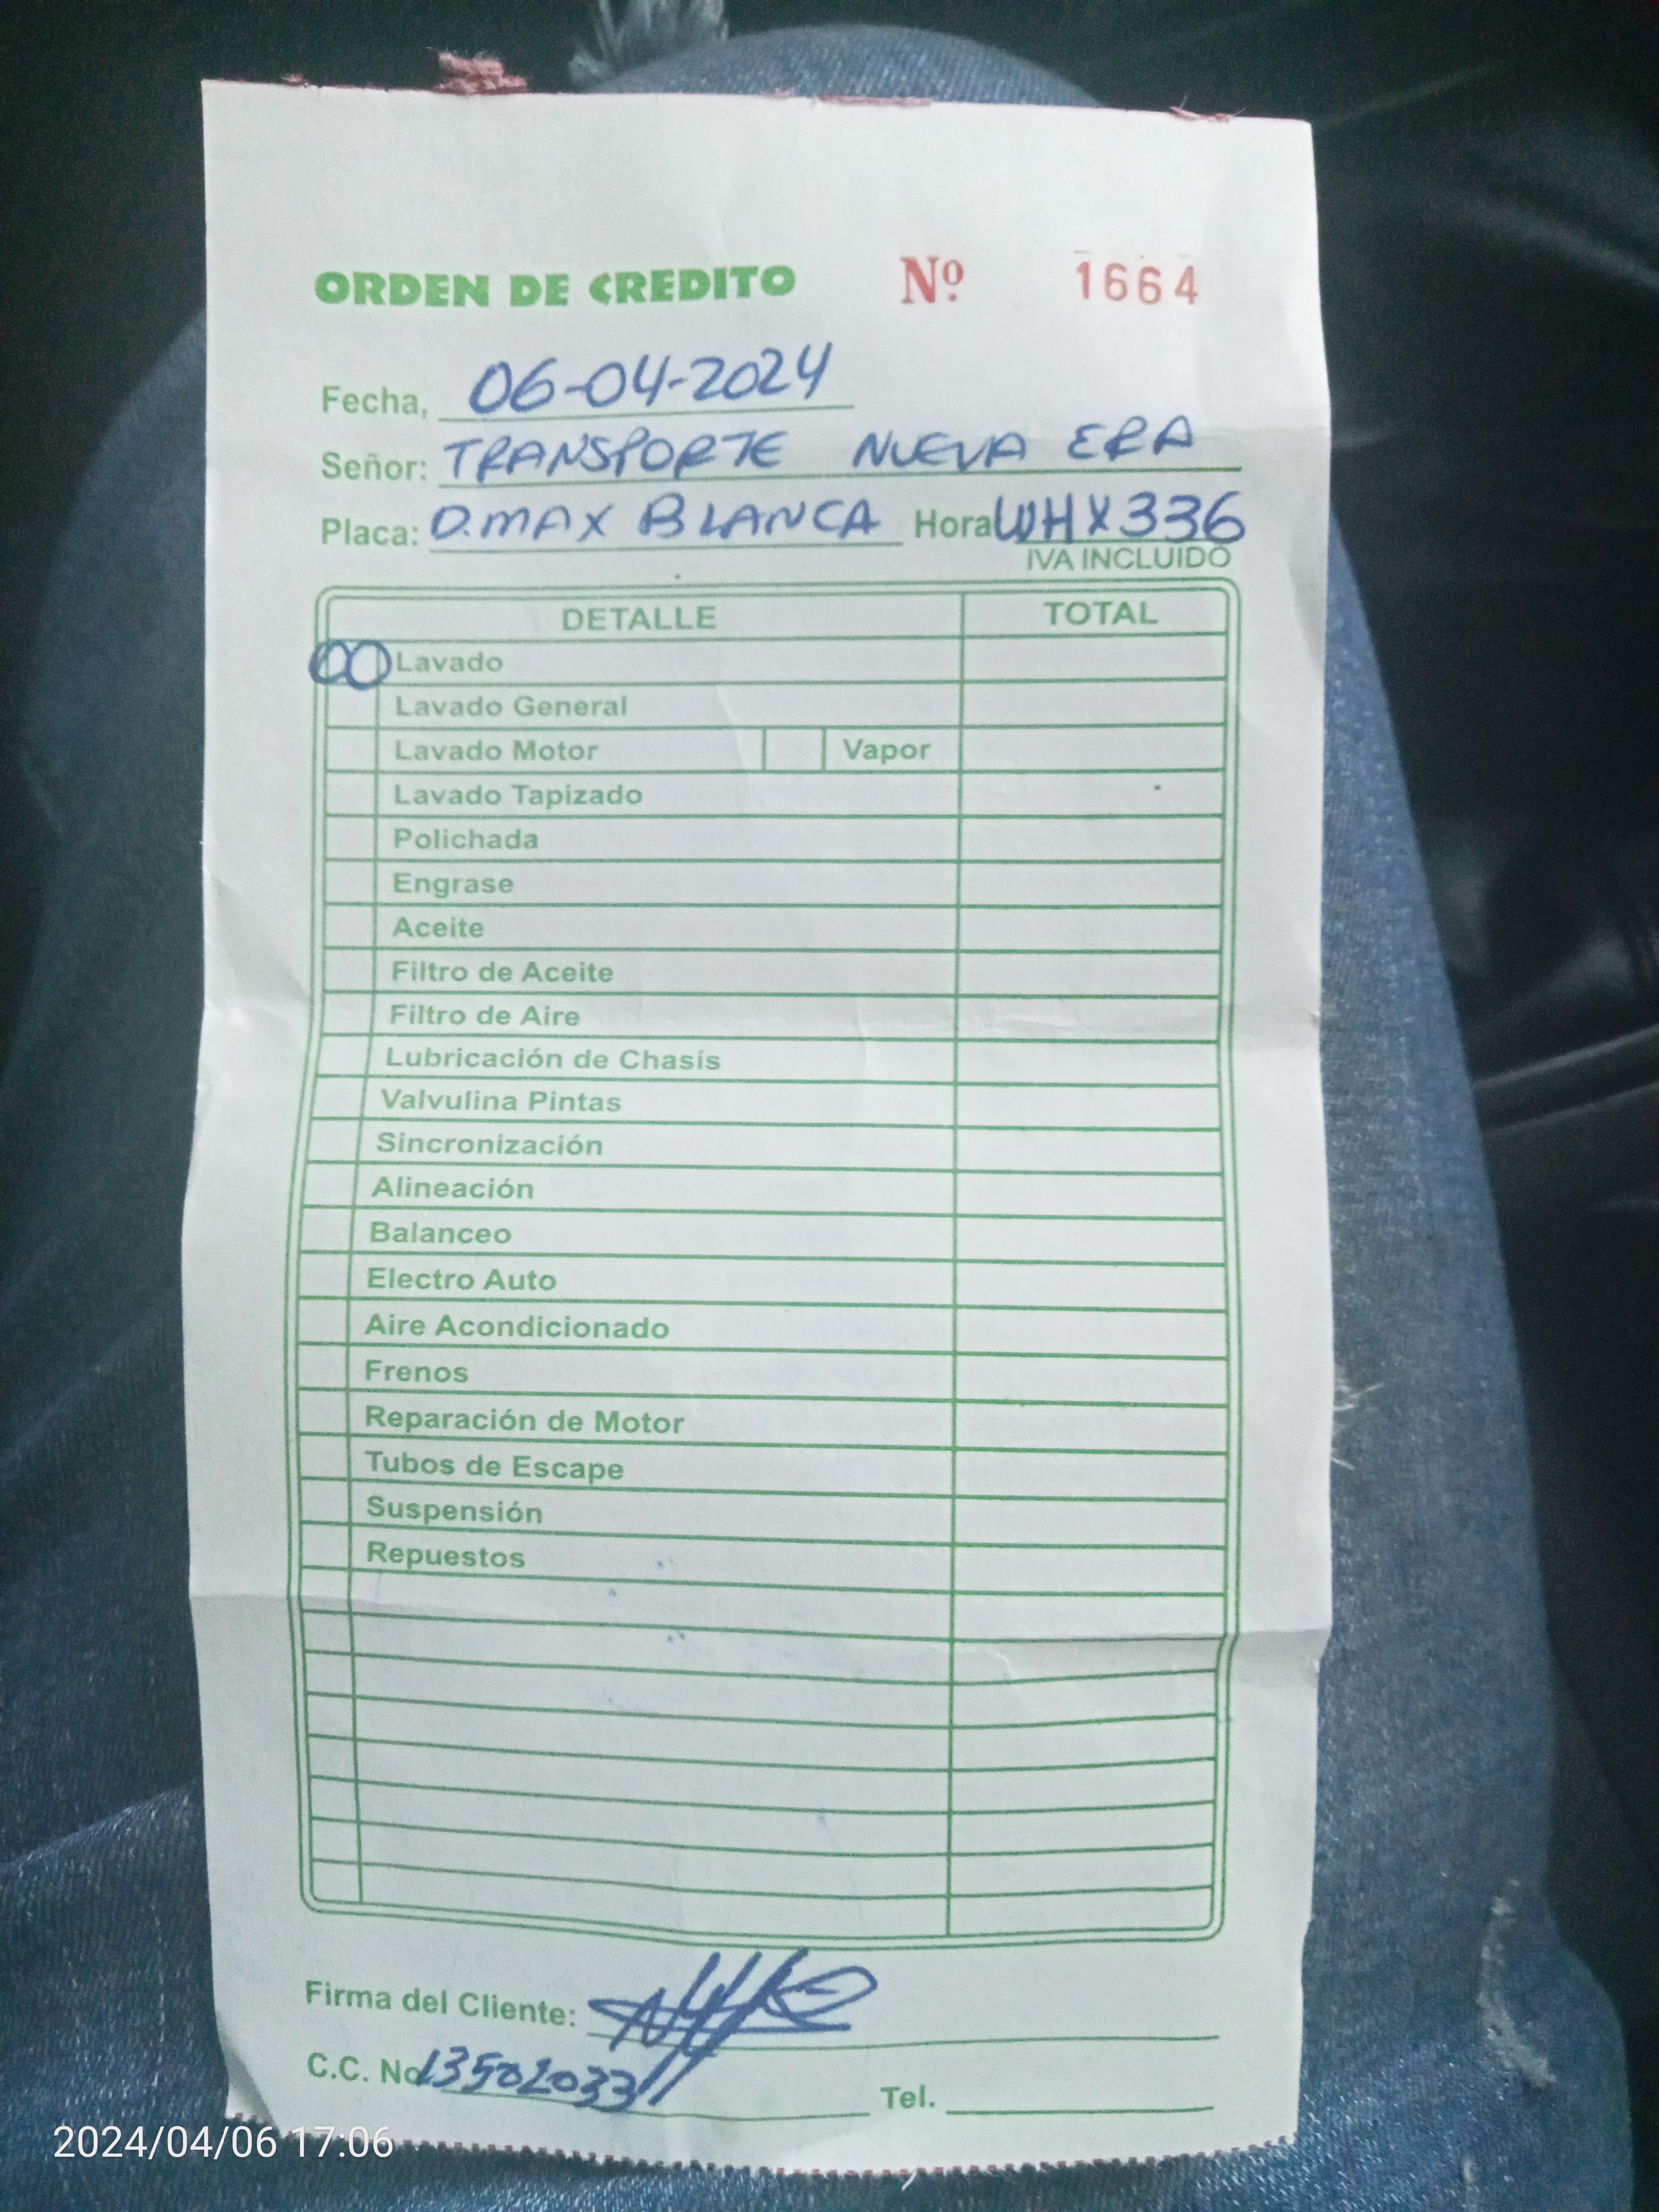 ORDEN DE CREDITO Nº 1664
Fecha, 06-04-2024
Señor: TRANSPORTE NUEVA ERA
Placa: D.MAX BLANCA Hora WHX336
IVA INCLUIDO
DETALLE TOTAL
Lavado
Lavado General
Lavado Motor Vapor
Lavado Tapizado
Polichada
Engrase
Aceite
Filtro de Aceite
Filtro de Aire
Lubricación de Chasís
Valvulina Pintas
Sincronización
Alineación
Balanceo
Electro Auto
Aire Acondicionado
Frenos
Reparación de Motor
Tubos de Escape
Suspensión
Repuestos
Firma del Cliente:
C.C. No 13502033 Tel.
2024/04/06 17:06